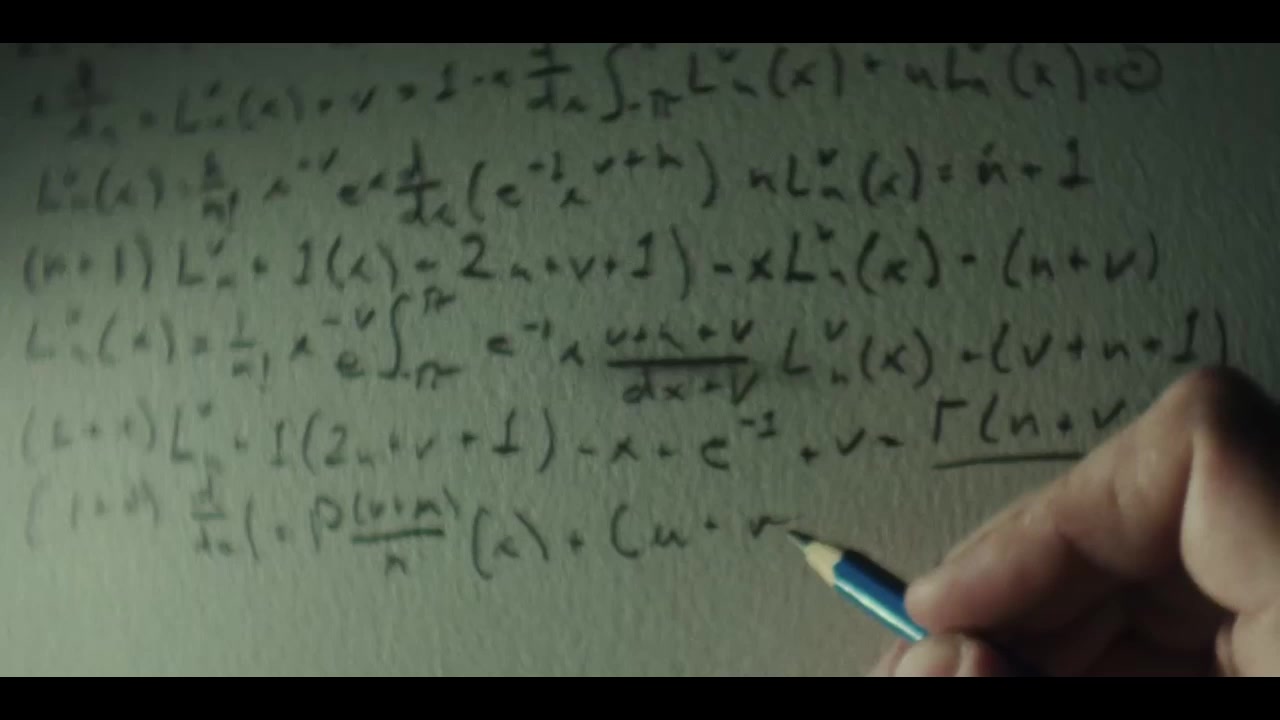 x d/dx + Lᵛₙ(x) + v + 1 - x d/dx ∫₋π^π Lᵛₙ(x) + nLᵛₙ(x) = 0
Lᵛₙ(x) = 1/n! x⁻ᵛ e x d/dx (e⁻¹ x ᵛ⁺ⁿ) nLᵛₙ(x) = n + 1
(n+1) Lᵛₙ + 1(x) - 2n+v+1) - xLᵛₙ(x) - (n+v)
Lᵛₙ(x) = 1/n! x⁻ᵛ e ∫₋π^π e⁻¹ x (v+n+v)/(dx+v) Lᵛₙ(x) - (v+n+1)
Lᵛₙ + 1(2n+v+1) - x + e⁻¹ + v - Γ(n+v
d/dx (+ P(v+n)/n (x) + (n + v